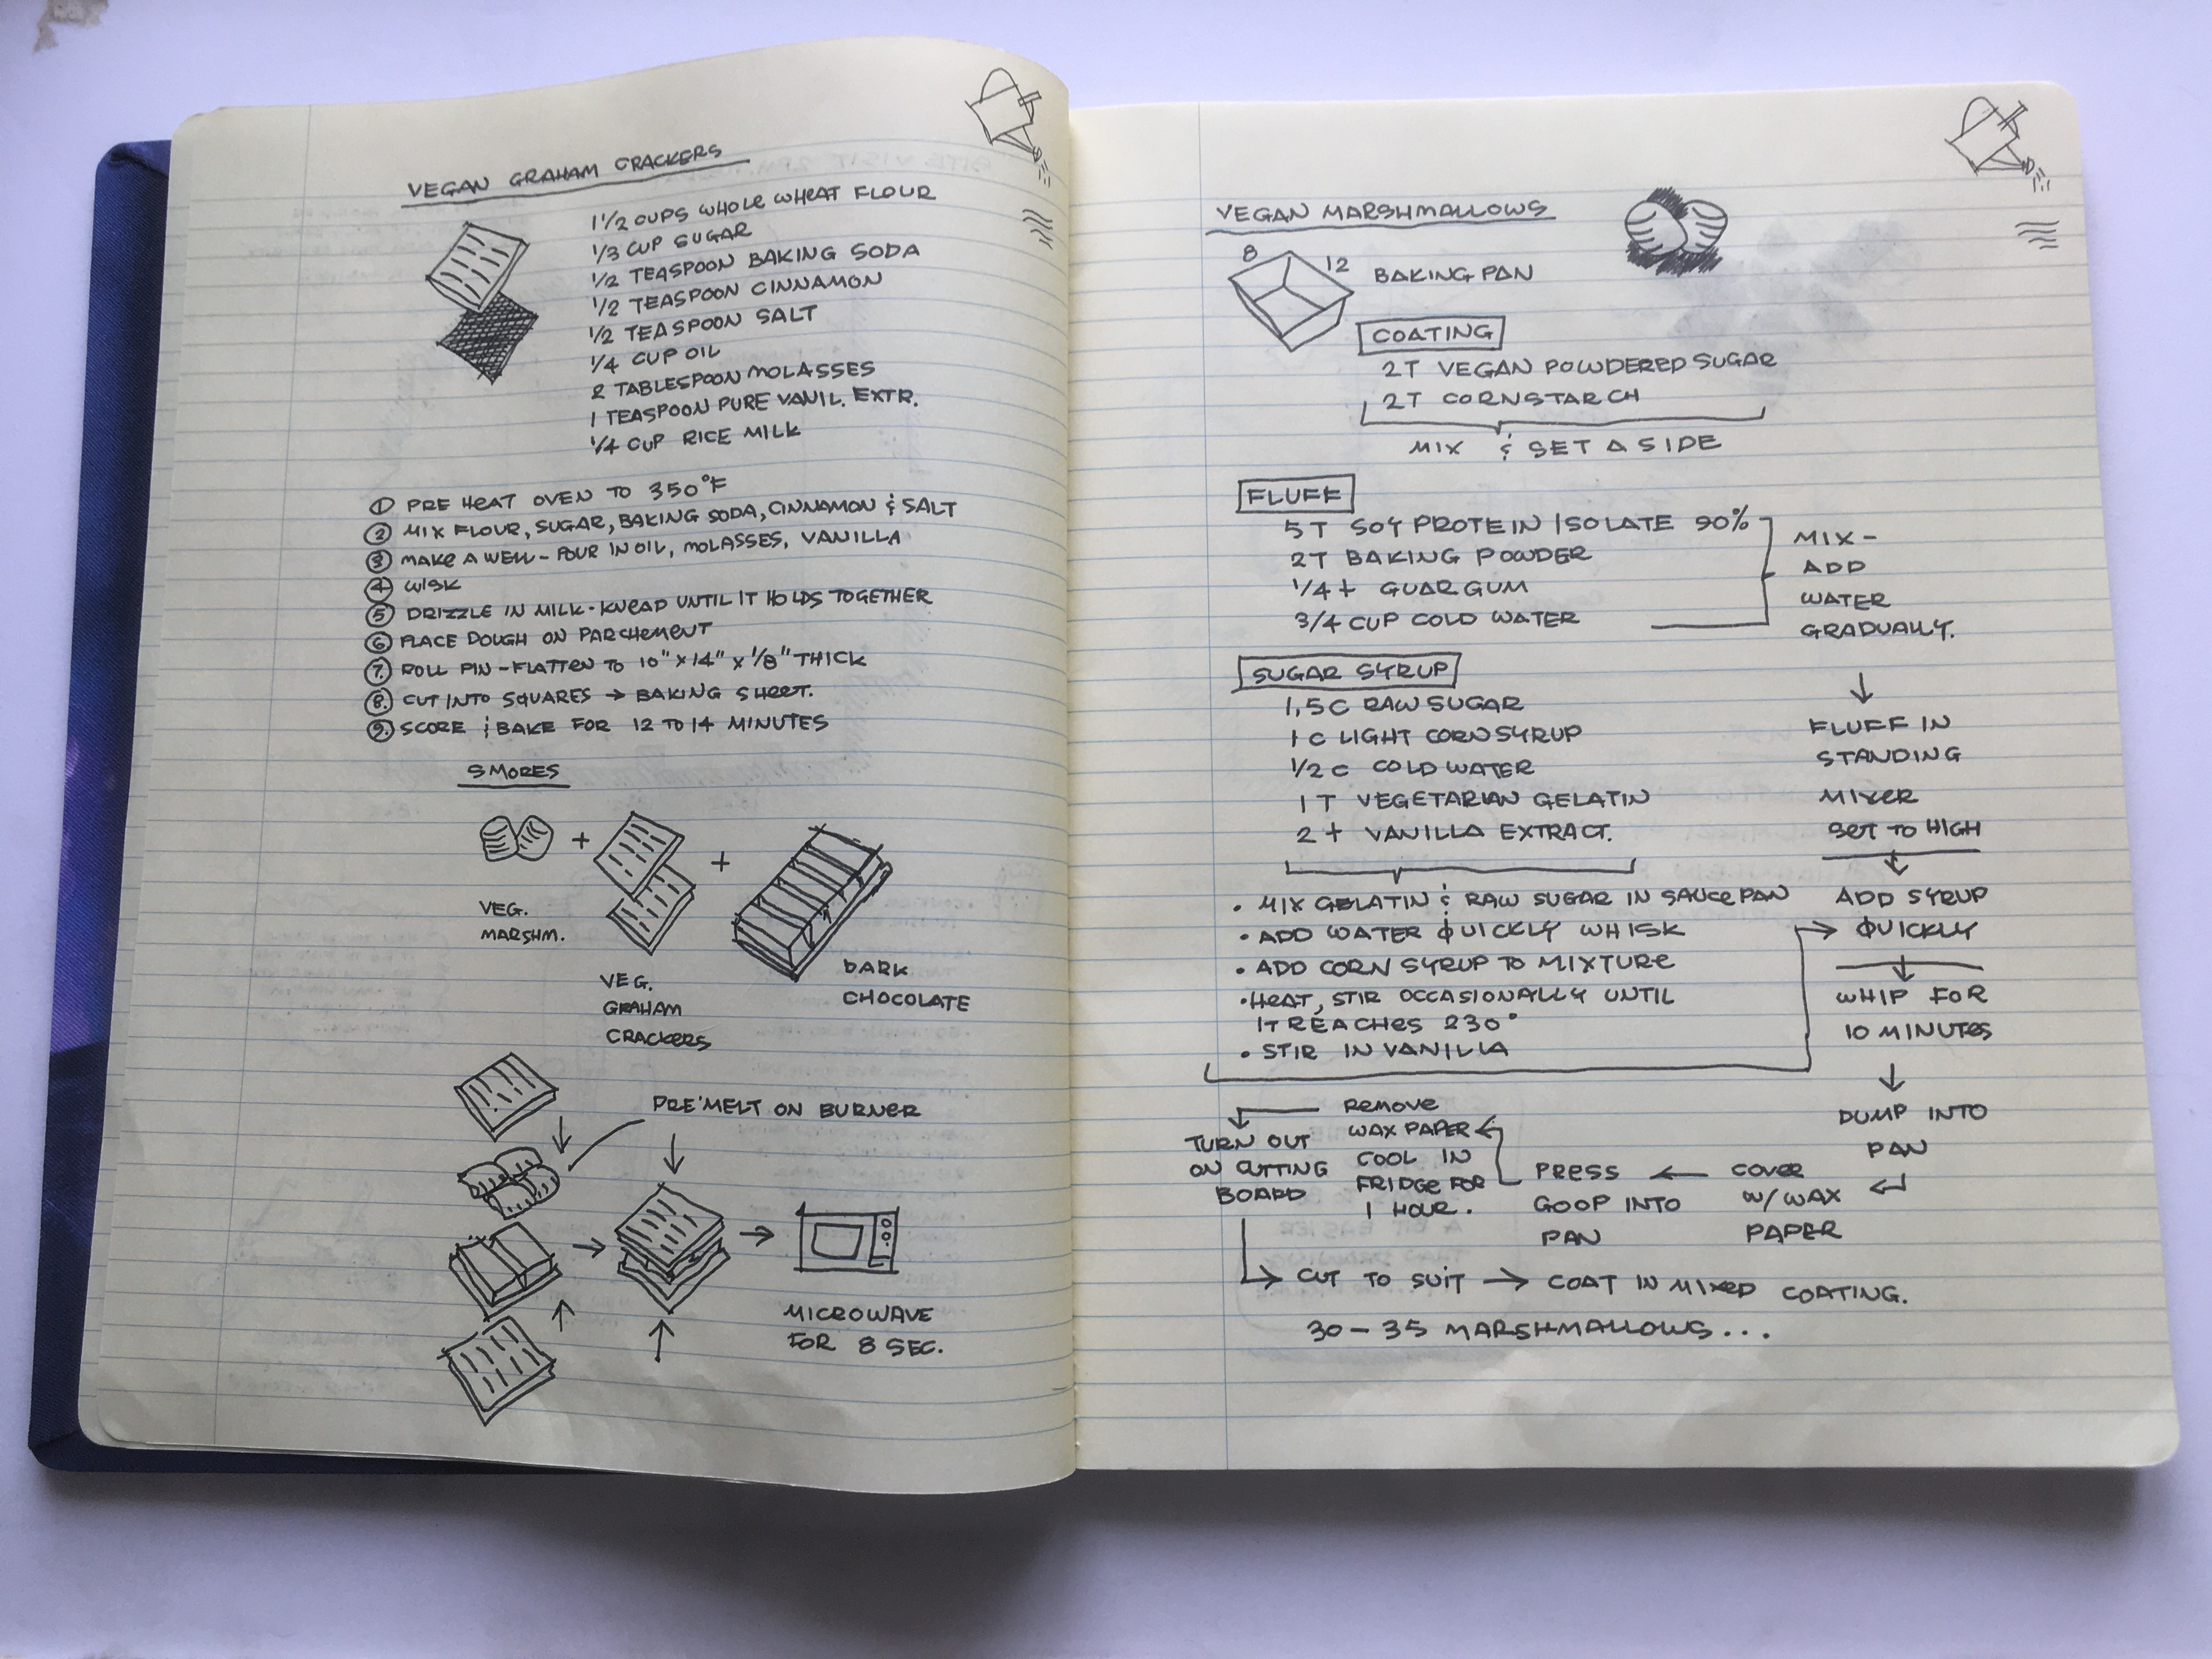 VEGAN GRAHAM CRACKERS
1 1/2 CUPS WHOLE WHEAT FLOUR
1/3 CUP SUGAR
1/2 TEASPOON BAKING SODA
1/2 TEASPOON CINNAMON
1/2 TEASPOON SALT
1/4 CUP OIL
2 TABLESPOON MOLASSES
1 TEASPOON PURE VANIL. EXTR.
1/4 CUP RICE MILK
① PRE HEAT OVEN TO 350°F
② MIX FLOUR, SUGAR, BAKING SODA, CINNAMON & SALT
③ MAKE A WELL - POUR IN OIL, MOLASSES, VANILLA
④ WISK
⑤ DRIZZLE IN MILK - KNEAD UNTIL IT HOLDS TOGETHER
⑥ PLACE DOUGH ON PARCHEMENT
⑦ ROLL PIN - FLATTEN TO 10" x 14" x 1/8" THICK
⑧ CUT INTO SQUARES → BAKING SHEET.
⑨ SCORE & BAKE FOR 12 TO 14 MINUTES
SMORES
+
+
VEG.
MARSHM.
VEG.
GRAHAM
CRACKERS
DARK
CHOCOLATE
PRE'MELT ON BURNER
MICROWAVE
FOR 8 SEC.
VEGAN MARSHMALLOWS
8
12
BAKING PAN
COATING
2T VEGAN POWDERED SUGAR
2T CORNSTARCH
MIX & SET ASIDE
FLUFF
5T SOY PROTEIN ISOLATE 90%
2T BAKING POWDER
1/4 t GUAR GUM
3/4 CUP COLD WATER
MIX -
ADD
WATER
GRADUALLY.
↓
FLUFF IN
STANDING
MIXER
SET TO HIGH
↓
ADD SYRUP
QUICKLY
↓
WHIP FOR
10 MINUTES
↓
DUMP INTO
PAN
SUGAR SYRUP
1,5C RAW SUGAR
1 C LIGHT CORN SYRUP
1/2 C COLD WATER
1 T VEGETARIAN GELATIN
2 t VANILLA EXTRACT.
• MIX GELATIN & RAW SUGAR IN SAUCE PAN
• ADD WATER QUICKLY WHISK
• ADD CORN SYRUP TO MIXTURE
• HEAT, STIR OCCASIONALLY UNTIL
IT REACHES 230°
• STIR IN VANILLA
COVER
W/ WAX
PAPER
PRESS
GOOP INTO
PAN
REMOVE
WAX PAPER
COOL IN
FRIDGE FOR
1 HOUR.
TURN OUT
ON CUTTING
BOARD
CUT TO SUIT → COAT IN MIXED COATING.
30 - 35 MARSHMALLOWS...